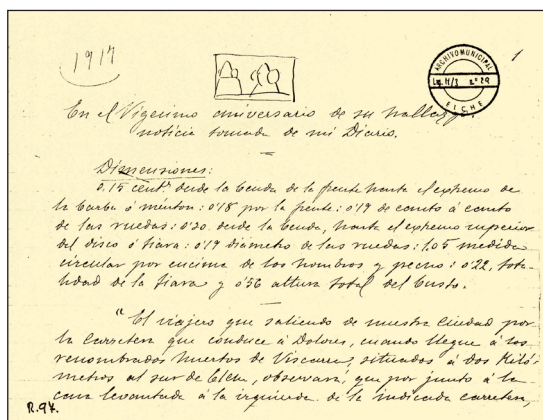 1917
1
ARCHIVO MUNICIPAL
Lg. H/3 nº 29
ELCHE
En el Vigesimo aniversario de su hallazgo,
noticia tomada de mi Diario.
Dimensiones:
0,15 centº desde la benda de la frente hasta el extremo de
la barba ó menton: 0'18 por la frente: 0'19 de canto á canto
de las ruedas: 0'20 desde la benda, hasta el extremo superior
del disco ó tiara: 0'19 diametro de las ruedas: 1,05 medida
circular por encima de los hombros y pecho: 0'22, tota-
lidad de la tiara y 0'56 altura total del busto.
"El viajero que saliendo de nuestra Ciudad por
la Carretera que conduce á Dolores, cuando llegue á los
renombrados huertos de Viscarra, situados á dos Kiló-
metros al sur de Elche, observará, que por junto á la
casa levantada á la izquierda de la indicada carretera,
R.94.